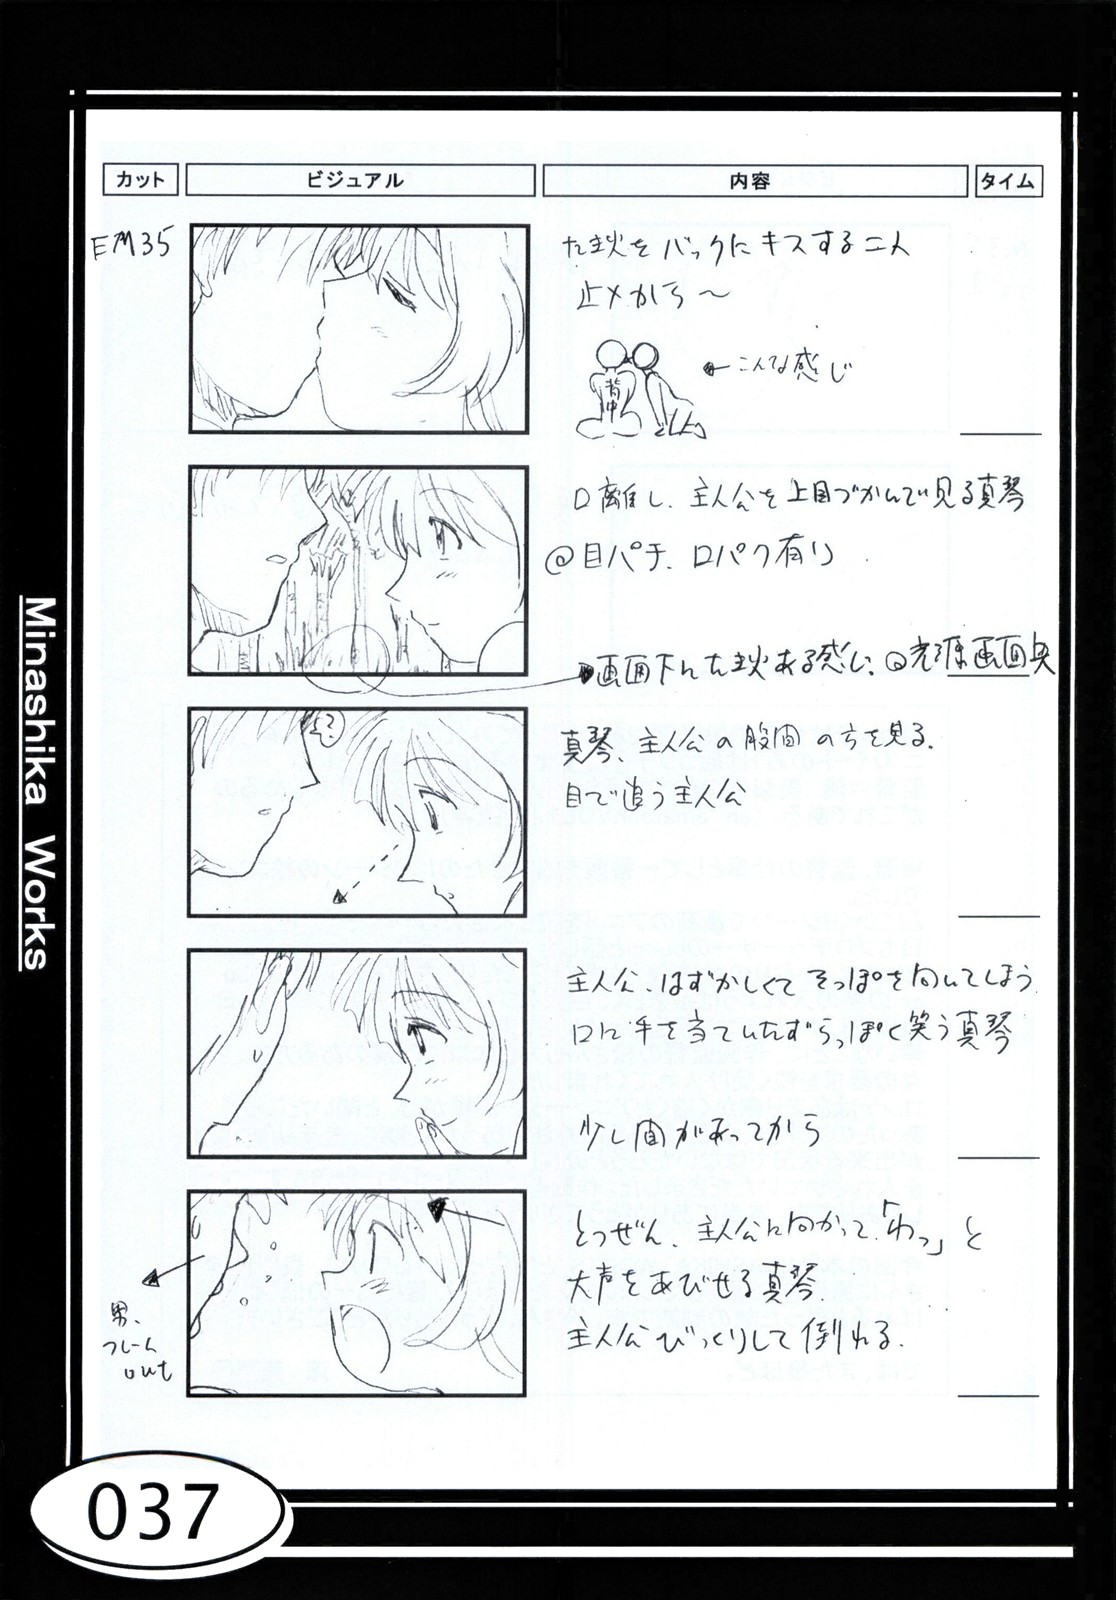 カット
ビジュアル
内容
タイム
EM35
たき火をバックにキスする二人
止メから～
背中
こんな感じ
口離し、主人公を上目づかいで見る真琴
@目パチ、口パク有り
画面下にたき火ある感じ、@光源画面奥
真琴、主人公の股間の方を見る.
目で追う主人公
!?
主人公、はずかしくてそっぽを向いてしまう.
口に手を当ていたずらっぽく笑う真琴
少し間があってから
とつぜん、主人公に向かって、「わっ」と
大声をあびせる真琴.
主人公びっくりして倒れる.
男、
フレーム
out
Minashika Works
037